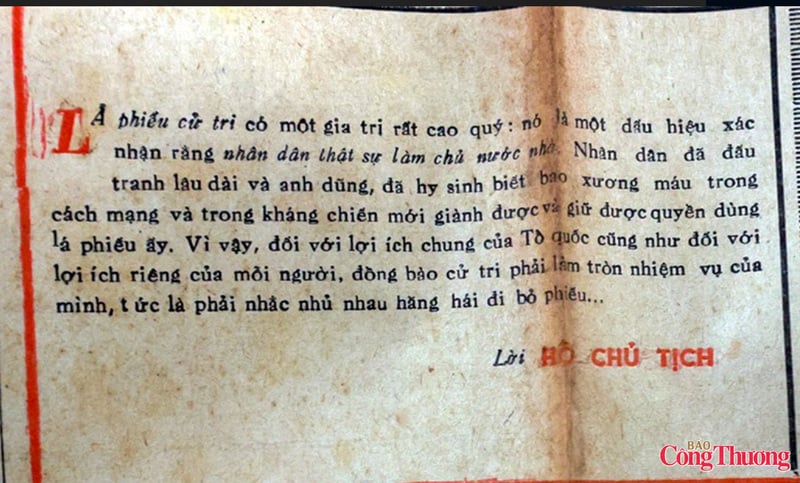 LÁ phiếu cử tri có một gia trị rất cao quý: nó là một dấu hiệu xác
nhận rằng nhân dân thật sự làm chủ nước nhà. Nhân dân đã đấu
tranh lâu dài và anh dũng, đã hy sinh biết bao xương máu trong
cách mạng và trong kháng chiến mới giành được và giữ được quyền dùng
lá phiếu ấy. Vì vậy, đối với lợi ích chung của Tổ quốc cũng như đối với
lợi ích riêng của mỗi người, đồng bào cử tri phải làm tròn nhiệm vụ của
mình, tức là phải nhắc nhủ nhau hăng hái đi bỏ phiếu...
Lời HỒ CHỦ TỊCH
BÁO
Công Thương